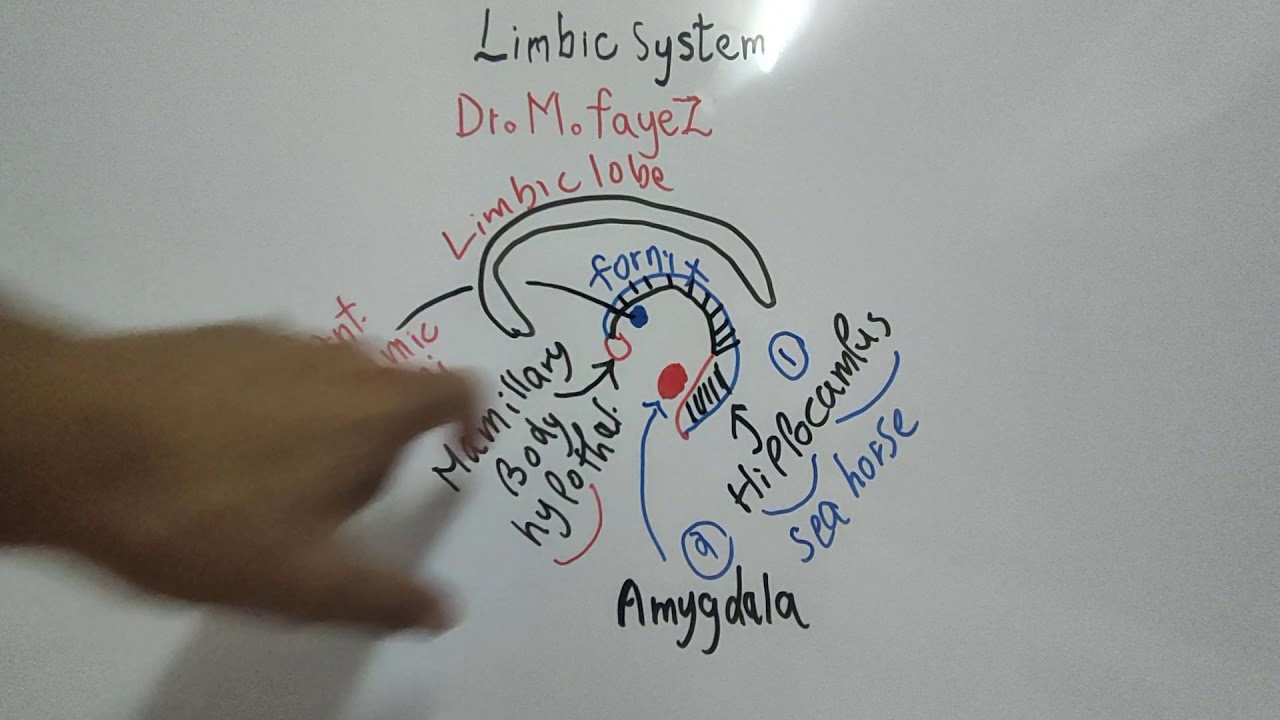 Limbic System
Dr. M. fayez
Limbic lobe
fornix
Mamillary
Body
hypothal.
1
Hippocampus
sea horse
2
Amygdala